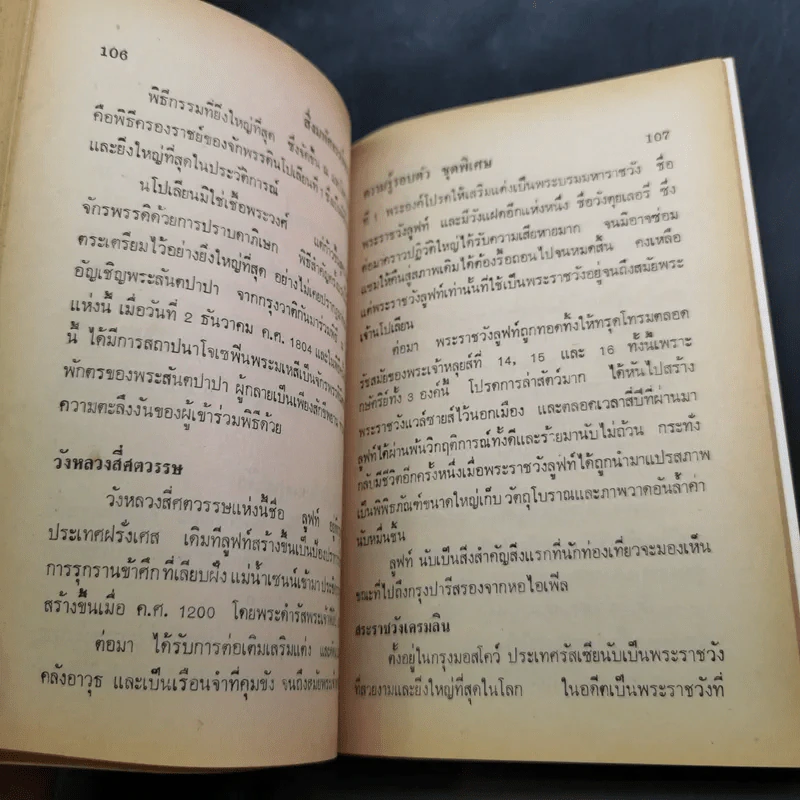 106
พิธีกรรมที่ยิ่งใหญ่ที่สุด ซึ่งจัดขึ้น ณ
คือพิธีครองราชย์ของจักรพรรดินโปเลียนที่ 1
และยิ่งใหญ่ที่สุดในประวัติการณ์
นโปเลียนมิใช่เชื้อพระวงศ์
จักรพรรดิด้วยการปราบดาภิเษก พิธีสำคัญ
ตระเตรียมไว้อย่างยิ่งใหญ่ที่สุด อย่างไม่เคยปรากฏ
อัญเชิญพระสันตปาปา จากกรุงวาติกันมาร่วมพิธี
แห่งนี้ เมื่อวันที่ 2 ธันวาคม ค.ศ. 1804
นี้ ได้มีการสถาปนาโจเซฟีนพระมเหสีเป็นจักร
พักตรของพระสันตปาปา ผู้กลายเป็นเพียงสักขีพยาน
ความตะลึงงันของผู้เข้าร่วมพิธีด้วย
วังหลวงสี่ศตวรรษ
วังหลวงสี่ศตวรรษแห่งนี้ชื่อ ลูฟท์
ประเทศฝรั่งเศส เดิมทีลูฟท์สร้างขึ้นเป็นป้อม
การรุกรานข้าศึกที่เลียบฝั่งแม่น้ำเซนน์เข้ามา
สร้างขึ้นเมื่อ ค.ศ. 1200 โดยพระดำรัสพระเจ้า
ต่อมา ได้รับการต่อเติมเสริมแต่ง
คลังอาวุธ และเป็นเรือนจำที่คุมขัง จนถึงสมัยพระ
107
ความรู้รอบตัว ชุดพิเศษ
ที่ 1 พระองค์โปรดให้เสริมแต่งเป็นพระบรมมหาราชวัง ชื่อ
พระราชวังลูฟท์ และมีวังแฝดอีกแห่งหนึ่ง ชื่อวังตุยเลอรี ซึ่ง
ต่อมาคราวปฏิวัติใหญ่ได้รับความเสียหายมาก จนมิอาจซ่อม
แซมให้คืนสู่สภาพเดิมได้ต้องรื้อถอนไปจนหมดสิ้น คงเหลือ
แต่พระราชวังลูฟท์เท่านั้นที่ใช้เป็นพระราชวังอยู่จนถึงสมัยพระ
เจ้านโปเลียน
ต่อมา พระราชวังลูฟท์ถูกทอดทิ้งให้ทรุดโทรมตลอด
รัชสมัยของพระเจ้าหลุยส์ที่ 14, 15 และ 16 ทั้งนี้เพราะ
กษัตริย์ทั้ง 3 องค์นี้ โปรดการล่าสัตว์มาก ได้หันไปสร้าง
พระราชวังแวล์ซายส์ไว้นอกเมือง และตลอดเวลาสี่ปีที่ผ่านมา
ลูฟท์ได้ผ่านพ้นวิกฤติการณ์ทั้งดีและร้ายมานับไม่ถ้วน กระทั่ง
กลับมีชีวิตอีกครั้งหนึ่งเมื่อพระราชวังลูฟท์ได้ถูกนำมาแปรสภาพ
เป็นพิพิธภัณฑ์ขนาดใหญ่เก็บ วัตถุโบราณและภาพวาดอันล้ำค่า
นับหมื่นชิ้น
ลูฟท์ นับเป็นสิ่งสำคัญสิ่งแรกที่นักท่องเที่ยวจะมองเห็น
ขณะที่ไปถึงกรุงปารีสรองจากหอไอเฟิล
สระราชวังเครมลิน
ตั้งอยู่ในกรุงมอสโคว์ ประเทศรัสเซียนับเป็นพระราชวัง
ที่สวยงามและยิ่งใหญ่ที่สุดในโลก ในอดีตเป็นพระราชวังที่